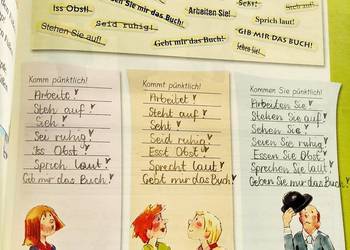 Iss Obst!
Sie mir das Buch!
Arbeiten Sie!
Seht!
Suchen Sie auf!
Seid ruhig!
Sprich laut!
Stehen Sie auf!
Gebt mir das Buch!
GIB MIR DAS BUCH!
Sehen Sie!
Komm pünktlich!
Arbeite!
Steh auf!
Sieh!
Sei ruhig!
Iss Obst!
Sprich laut!
Gib mir das Buch!
Kommt pünktlich!
Arbeitet!
Steht auf!
Seht!
Seid ruhig!
Esst Obst!
Sprecht laut!
Gebt mir das Buch!
Kommen Sie pünktlich!
Arbeiten Sie!
Stehen Sie auf!
Sehen Sie!
Seien Sie ruhig!
Essen Sie Obst!
Sprechen Sie laut!
Geben Sie mir das Buch!